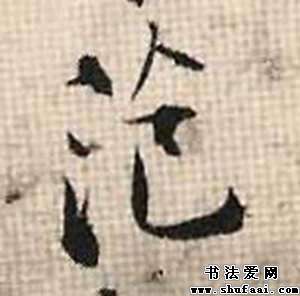 沧
书法爱网
www.shufaai.com